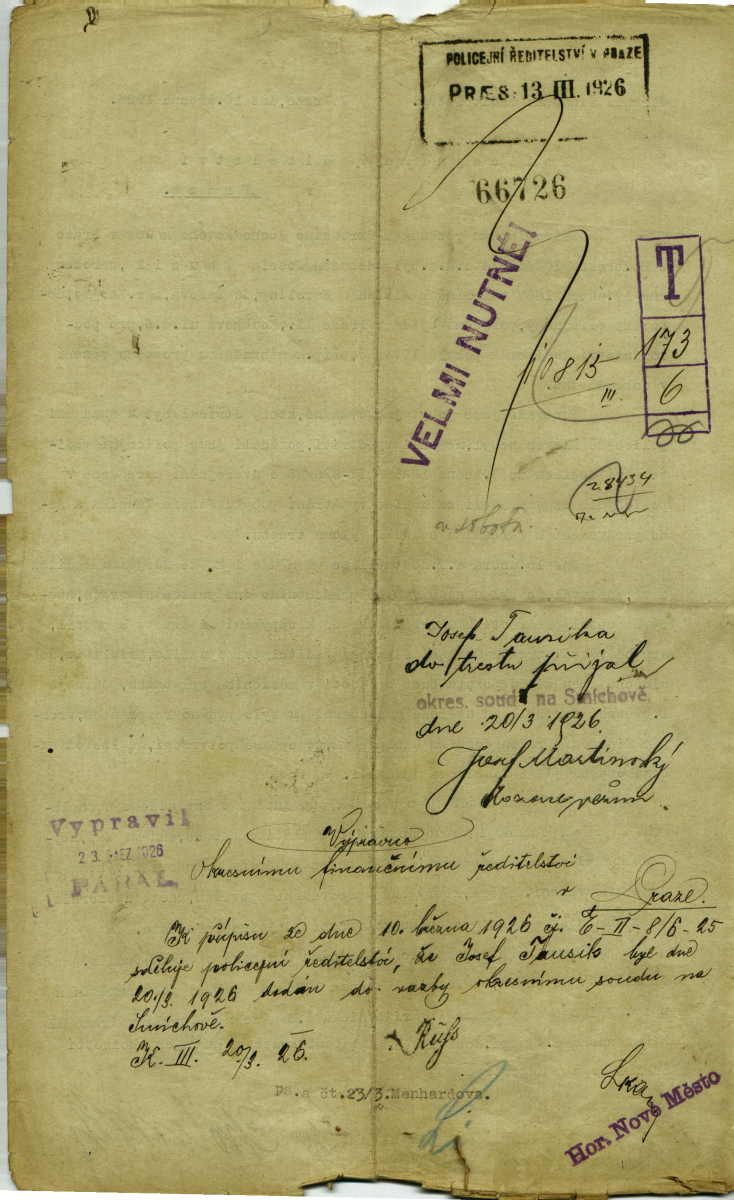 POLICEJNÍ ŘEDITELSTVÍ V PRAZE
PRÆS. 13 III. 1926
66726
VELMI NUTNÉ!
T
173
6
10815
III.
28434
v sobotu.
Josef Tausika
do trestu přijal
okres. soud na Smíchově
dne 20/3 1926.
Josef Martinovský
Vypravil
23. BŘEZ. 1926
PARAL
Výpravno
Okresnímu finančnímu ředitelství
v Praze.
K přípisu ze dne 10. března 1926 čj. E-II-8/6-25
sděluje policejní ředitelství, že Josef Tausik byl dne
20./3. 1926 dodán do vazby okresnímu soudu na
Smíchově.
K. III. 20/3. 26.
Ps. a čt. 23/3. Menhardova.
Hor. Nové Město